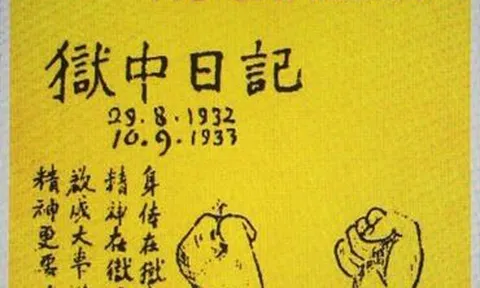 獄中日記
29.8.1932
10.9.1933
身体在獄
精神在獄
欲成大事
精神更要